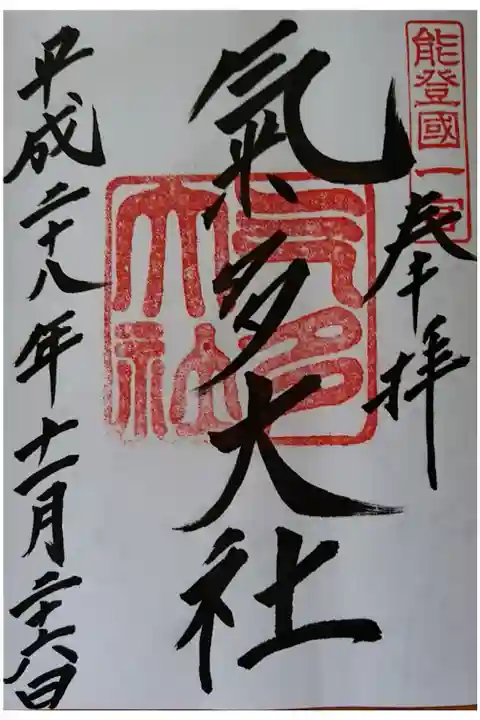 能登國一宮
奉拝
氣多大社
气多大社
平成二十八年十一月二十六日